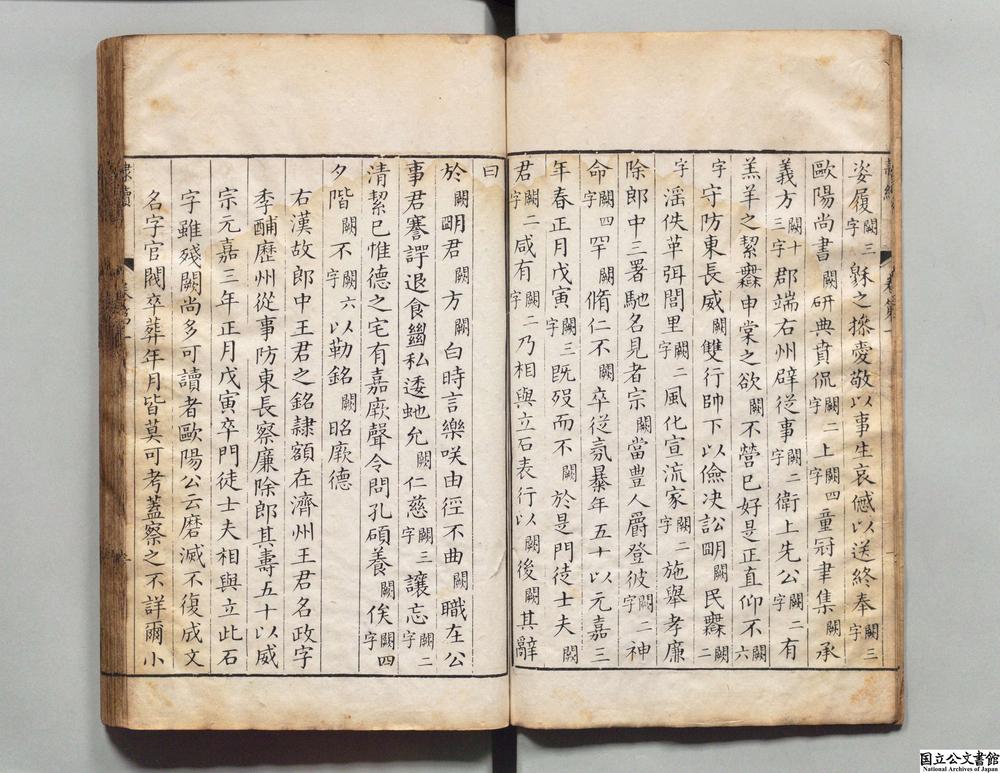 姿履闕三字繇之摖愛敬以事生哀慽以送終奉闕三字
歐陽尚書闕研典賁侃闕二字上闕四字童冠聿集闕承
義方闕十三字郡端右州辟従事闕二字衛上先公闕二字有
羔羊之絜申棠之欲闕不營已好是正直仰不闕六
字守防東長威闕雙行帥下以儉决訟朙闕民闕二
字滛佚革弭閭里闕二字風化宣流家闕二字施舉孝廉
除郎中三署馳名見者宗闕當豊人爵登彼闕二字神
命闕四字罕闕脩仁不闕卒従氛㬥年五十以元嘉三
年春正月戊寅闕三字既歿而不闕於是門徒士夫闕
君闕二字咸有闕二字乃相與立石表行以闕後闕其辭
曰
於闕朙君闕方闕白時言樂咲由徑不曲闕職在公
事君謇諤退食私逶虵允闕仁慈闕三字讓忘闕二字
清絜已惟德之宅有嘉厥聲令問孔碩養闕俟闕四字
夕階闕不闕六字以勒銘闕昭厥德
右漢故郎中王君之銘隷額在濟州王君名政字
季酺歷州從事防東長察廉除郎其壽五十以威
宗元嘉三年正月戊寅卒門徒士夫相與立此石
字雖殘闕尚多可讀者歐陽公云磨滅不復成文
名字官閥卒葬年月皆莫可考蓋察之不詳爾小
隷續
國立公文書館
National Archives of Japan